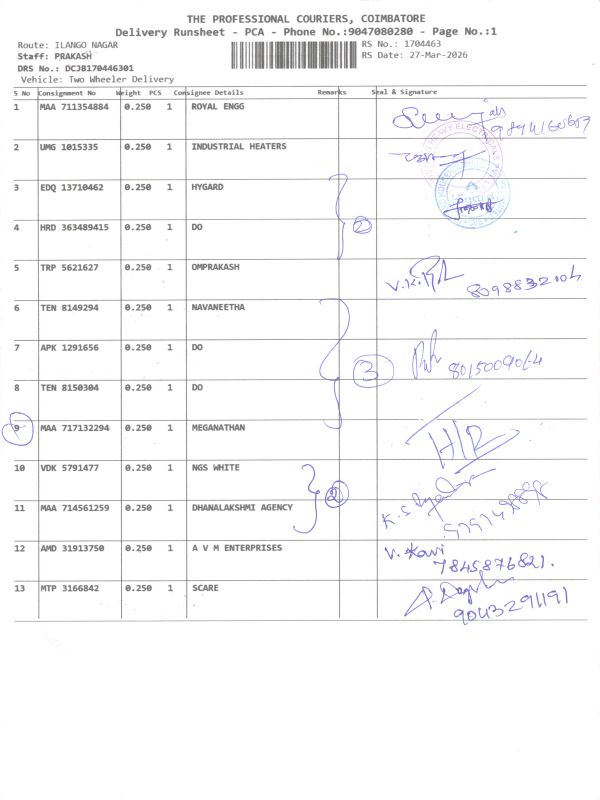 THE PROFESSIONAL COURIERS, COIMBATORE
Delivery Runsheet - PCA - Phone No.:9047080280 - Page No.:1
Route: ILANGO NAGAR
RS No.: 1704463
Staff: PRAKASH
RS Date: 27-Mar-2026
DRS No.: DCJB170446301
Vehicle: Two Wheeler Delivery
S No Consignment No Weight PCS Consignee Details Remarks Seal & Signature
1 MAA 711354884 0.250 1 ROYAL ENGG
2 UMG 1015335 0.250 1 INDUSTRIAL HEATERS
3 EDQ 13710462 0.250 1 HYGARD
2
4 HRD 363489415 0.250 1 DO
5 TRP 5621627 0.250 1 OMPRAKASH
8098832104
6 TEN 8149294 0.250 1 NAVANEETHA
7 APK 1291656 0.250 1 DO
3
8 TEN 8150304 0.250 1 DO
9 MAA 717132294 0.250 1 MEGANATHAN
10 VDK 5791477 0.250 1 NGS WHITE
2
11 MAA 714561259 0.250 1 DHANALAKSHMI AGENCY
12 AMD 31913750 0.250 1 A V M ENTERPRISES V. Kavi
7845876821.
13 MTP 3166842 0.250 1 SCARE
9043291191